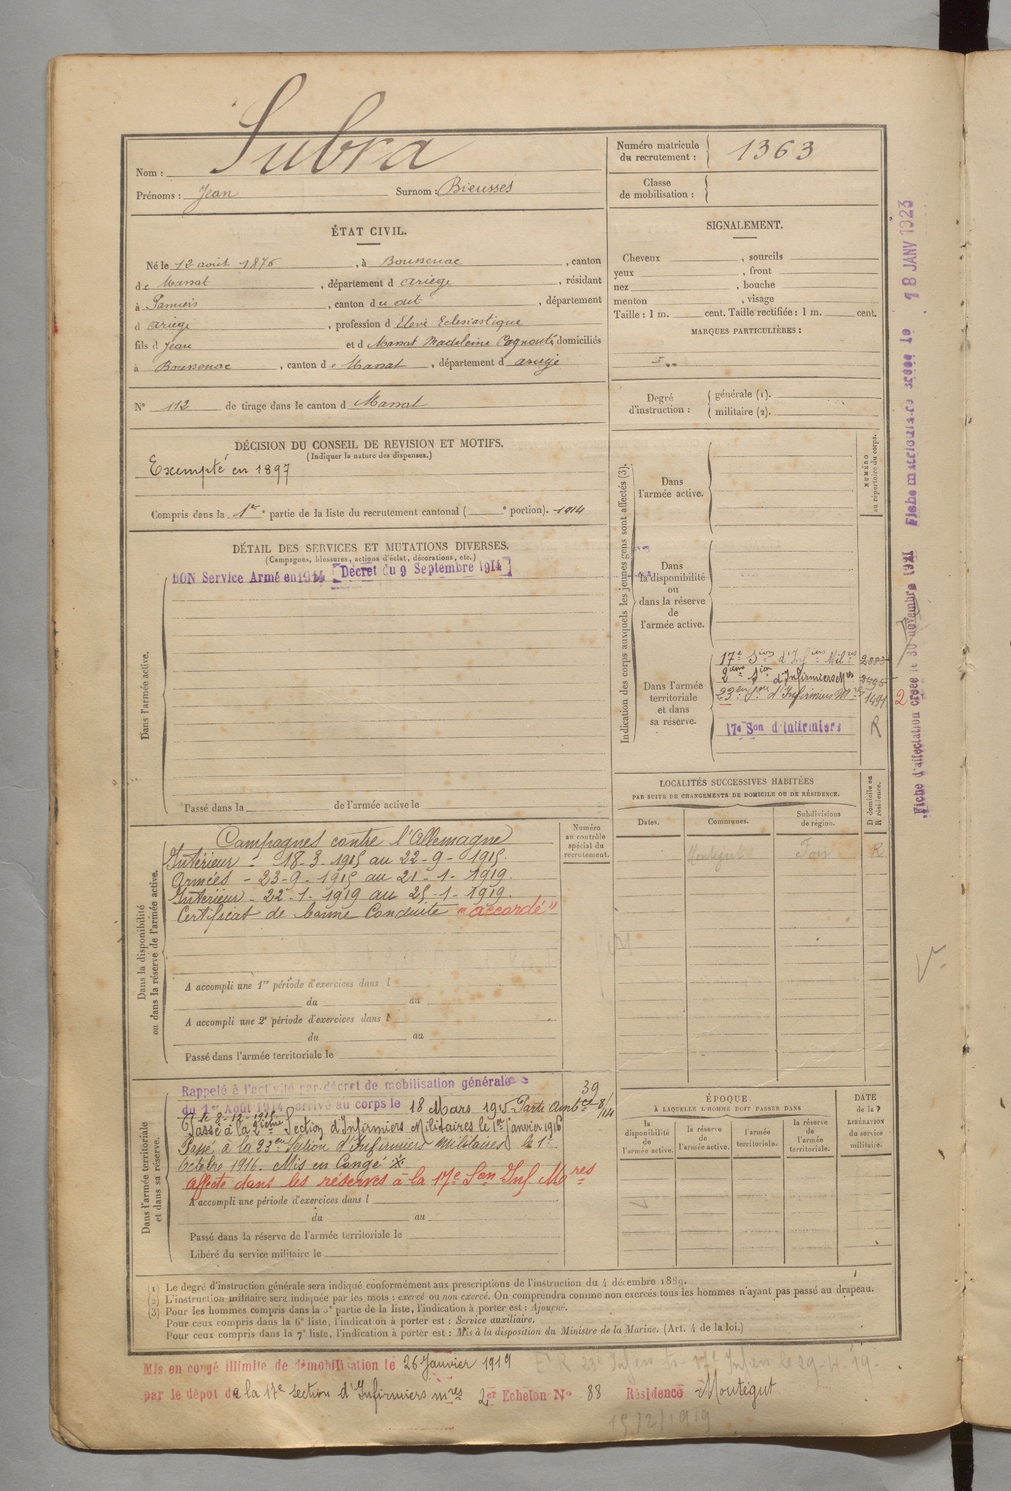 Nom : Subra
Prénoms : Jean Surnom : Bieusses
Numéro matricule du recrutement : 1363
Classe de mobilisation :
ÉTAT CIVIL.
Né le 12 août 1876, à Boussenac, canton
de Massat, département d Ariège, résidant
à Pamiers, canton du dit, département
d Ariège, profession d Elève Eclesiastique
fils d Jean et d Massat Madeleine, domiciliés
à Boussenac, canton de Massat, département d Ariège
N° 112 de tirage dans le canton d Massat
SIGNALEMENT.
Cheveux , sourcils
yeux , front
nez , bouche
menton , visage
Taille : 1 m. cent. Taille rectifiée : 1 m. cent.
MARQUES PARTICULIÈRES :
Degré d'instruction : générale (1).
militaire (2).
DÉCISION DU CONSEIL DE REVISION ET MOTIFS.
(Indiquer la nature des dispenses.)
Exempté en 1897
Compris dans la 1re partie de la liste du recrutement cantonal ( e portion). 1914
DÉTAIL DES SERVICES ET MUTATIONS DIVERSES.
(Campagnes, blessures, actions d'éclat, décorations, etc.)
BON Service Armé en 1914 Décret du 9 Septembre 1914
Dans l'armée active.
Passé dans la de l'armée active le
Indication des corps auxquels les jeunes gens sont affectés (3).
NUMÉRO au répertoire du corps.
Dans l'armée active.
Dans la disponibilité ou dans la réserve de l'armée active.
Dans l'armée territoriale et dans sa réserve.
17e Son d'Infirmiers R
LOCALITÉS SUCCESSIVES HABITÉES
PAR SUITE DE CHANGEMENTS DE DOMICILE OU DE RÉSIDENCE.
Dates. Communes. Subdivisions de région. D domicile ou R résidence.
Montégut Foix R
Dans la disponibilité ou dans la réserve de l'armée active.
Numéro au contrôle spécial du recrutement.
Campagnes contre l'Allemagne
Intérieur - 18-3-1915 au 22-9-1915.
Armées - 23-9-1915 au 21-1-1919.
Intérieur - 22-1-1919 au 25-1-1919.
Certificat de bonne Conduite "accordé"
A accompli une 1re période d'exercices dans l
du au
A accompli une 2e période d'exercices dans l
du au
Passé dans l'armée territoriale le
Dans l'armée territoriale et dans sa réserve.
Rappelé à l'activité par décret de mobilisation générale
du 1er Août 1914 arrivé au corps le 18 Mars 1915
Passé à la 2ième Section d'Infirmiers Militaires le 1er Janvier 1916
Passé à la 23e Section d'Infirmiers Militaires le 1er
Octobre 1916. Mis en Congé
affecté dans les réserves à la 17e Son Inf Mres
A accompli une période d'exercices dans l
du au
Passé dans la réserve de l'armée territoriale le
Libéré du service militaire le
ÉPOQUE
À LAQUELLE L'HOMME DOIT PASSER DANS
la disponibilité de l'armée active.
la réserve de l'armée active.
l'armée territoriale.
la réserve de l'armée territoriale.
DATE de la LIBÉRATION du service militaire.
(1) Le degré d'instruction générale sera indiqué conformément aux prescriptions de l'instruction du 4 décembre 1889.
(2) L'instruction militaire sera indiquée par les mots : exercé ou non exercé. On comprendra comme non exercés tous les hommes n'ayant pas passé au drapeau.
(3) Pour les hommes compris dans la 5e partie de la liste, l'indication à porter est : Ajourné.
Pour ceux compris dans la 6e liste, l'indication à porter est : Service auxiliaire.
Pour ceux compris dans la 7e liste, l'indication à porter est : Mis à la disposition du Ministre de la Marine. (Art. 4 de la loi.)
Mis en congé illimité de démobilisation le 26 Janvier 1919
par le dépôt de la 17e section d'Infirmiers mres 2e Echelon N° 88 Résidence Montégut
15/2/1919
Fiche d'affectation créée le 30 novembre 1921 Fiche matriculaire créée le 18 JANV 1923